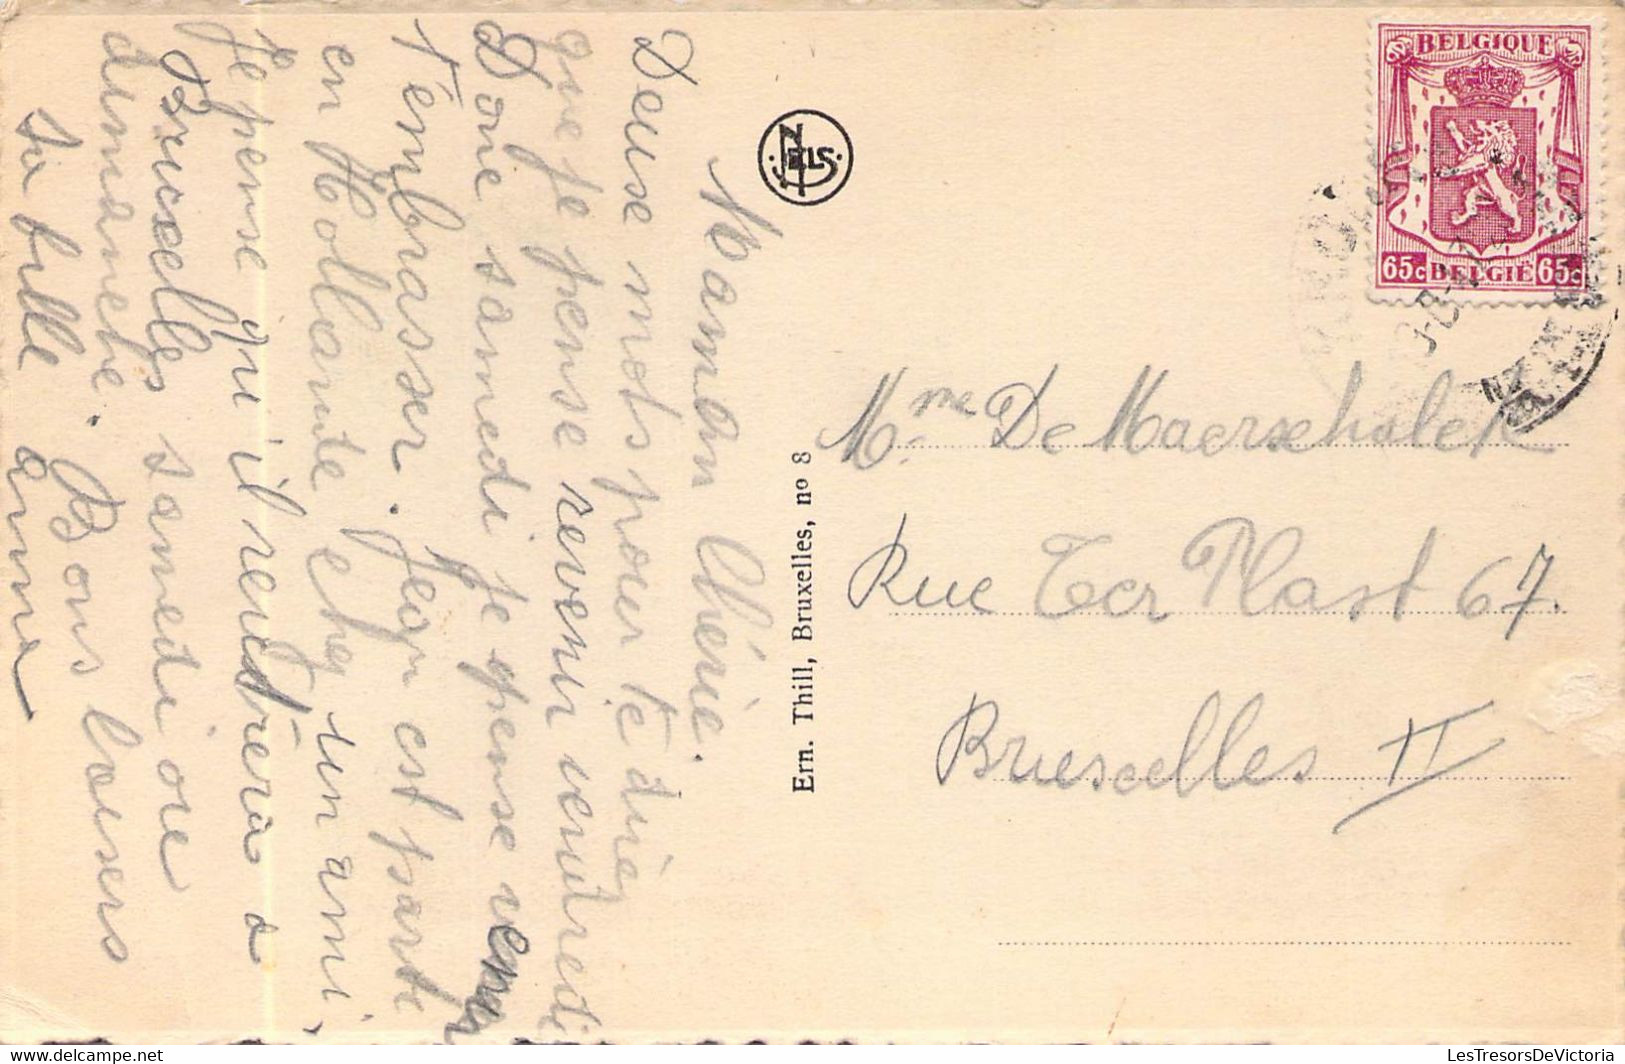 Maman Chérie.
Deuse mots pour te dire
que je pense revenir venutredi
Donc samedi je pense venir
t'embrasser. Jean est parte
en Hollante chez un ami,
Je pense qu'il rentrera a
Bruxelles samedi ou
dimanche. Bons baisers
ta fille anna
NELS
Ern. Thill, Bruxelles, no 8
BELGIQUE
65c BELGIË 65c
Mme. De Maerschalck
Rue Ter Plast 67.
Bruxelles II
LesTresorsDeVictoria.com